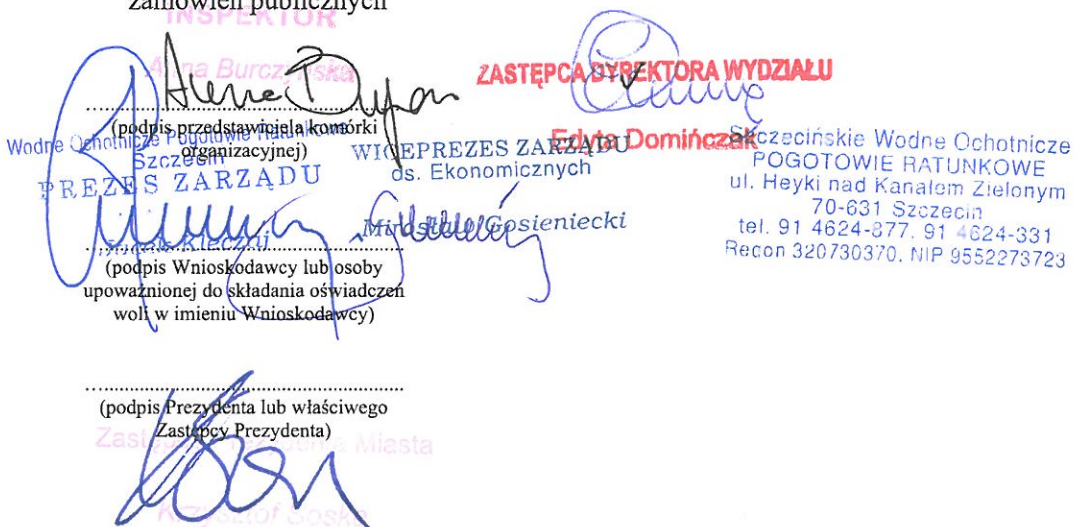 zamówień publicznych
INSPEKTOR
Anna Burczyńska
ZASTĘPCA DYREKTORA WYDZIAŁU
(podpis przedstawiciela komórki
organizacyjnej)
Edyta Domińczak
Wodne Ochotnicze Pogotowie Ratunkowe
Szczecin
PREZES ZARZĄDU
WICEPREZES ZARZĄDU
ds. Ekonomicznych
Mirosław Gosieniecki
Szczecińskie Wodne Ochotnicze
POGOTOWIE RATUNKOWE
ul. Heyki nad Kanałem Zielonym
70-631 Szczecin
tel. 91 4624-877, 91 4624-331
Regon 320730370, NIP 9552273723
(podpis Wnioskodawcy lub osoby
upoważnionej do składania oświadczeń
woli w imieniu Wnioskodawcy)
(podpis Prezydenta lub właściwego
Zastępcy Prezydenta)
Zastępca Prezydenta Miasta
Krzysztof Soska